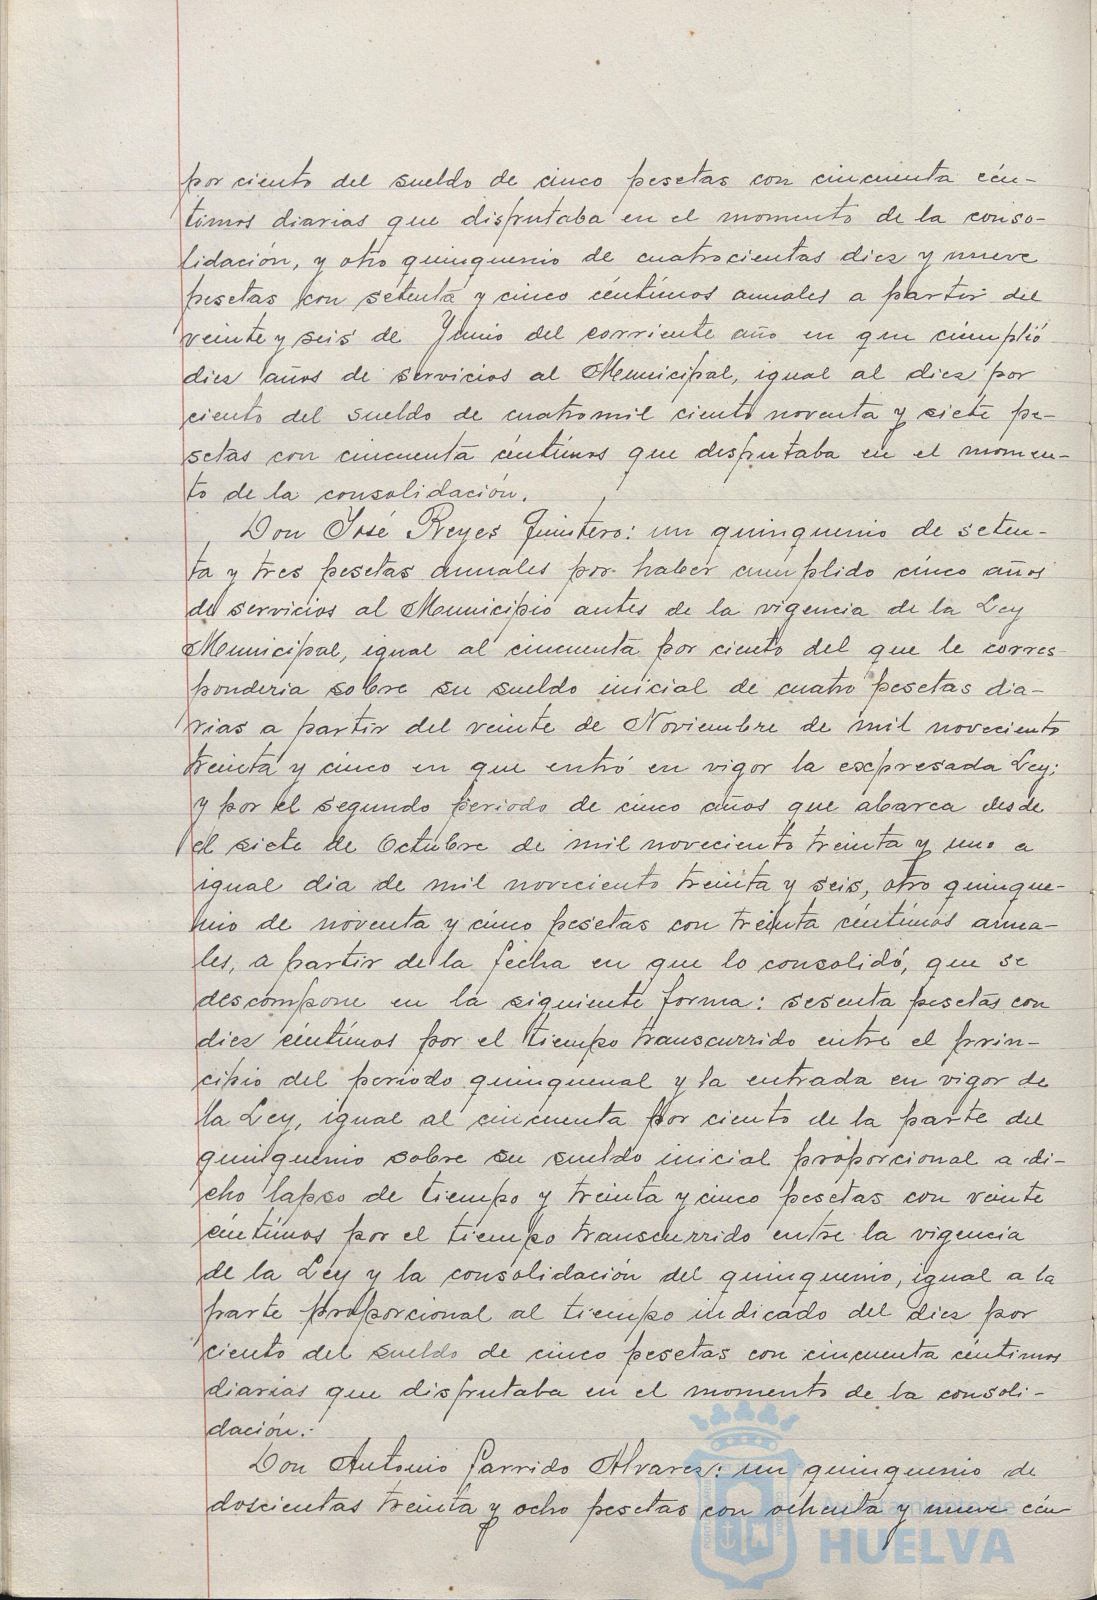 por ciento del sueldo de cinco pesetas con cincuenta cén-
timos diarias que disfrutaba en el momento de la conso-
lidación, y otro quinquenio de cuatrocientas diez y nueve
pesetas con setenta y cinco céntimos anuales a partir del
veinte y seis de Junio del corriente año en que cumplió
diez años de servicios al Municipal, igual al diez por
ciento del sueldo de cuatro mil ciento noventa y siete pe-
setas con cincuenta céntimos que desfrutaba en el momen-
to de la consolidación.
Don José Reyes Quintero: un quinquenio de seten-
ta y tres pesetas anuales por haber cumplido cinco años
de servicios al Municipio antes de la vigencia de la Ley
Municipal, igual al cincuenta por ciento del que le corres-
ponderia sobre su sueldo inicial de cuatro pesetas dia-
rias a partir del veinte de Noviembre de mil noveciento
treinta y cinco en que entró en vigor la expresada Ley;
y por el segundo periodo de cinco años que abarca desde
el siete de Octubre de mil noveciento treinta y uno a
igual dia de mil noveciento treinta y seis, otro quinque-
nio de noventa y cinco pesetas con treinta céntimos anua-
les, a partir de la fecha en que lo consolidó, que se
descompone en la siguiente forma: sesenta pesetas con
diez céntimos por el tiempo transcurrido entre el prin-
cipio del período quinquenal y la entrada en vigor de
la Ley, igual al cincuenta por ciento de la parte del
quinquenio sobre su sueldo inicial proporcional a di-
cho lapso de tiempo y treinta y cinco pesetas con veinte
céntimos por el tiempo transcurrido entre la vigencia
de la Ley y la consolidación del quinquenio, igual a la
parte proporcional al tiempo indicado del diez por
ciento del sueldo de cinco pesetas con cincuenta céntimos
diarias que disfrutaba en el momento de la consoli-
dación.-
Don Antonio Garrido Alvarez: un quinquenio de
doscientas treinta y ocho pesetas con ochenta y nueve cén-
Ayuntamiento de
HUELVA